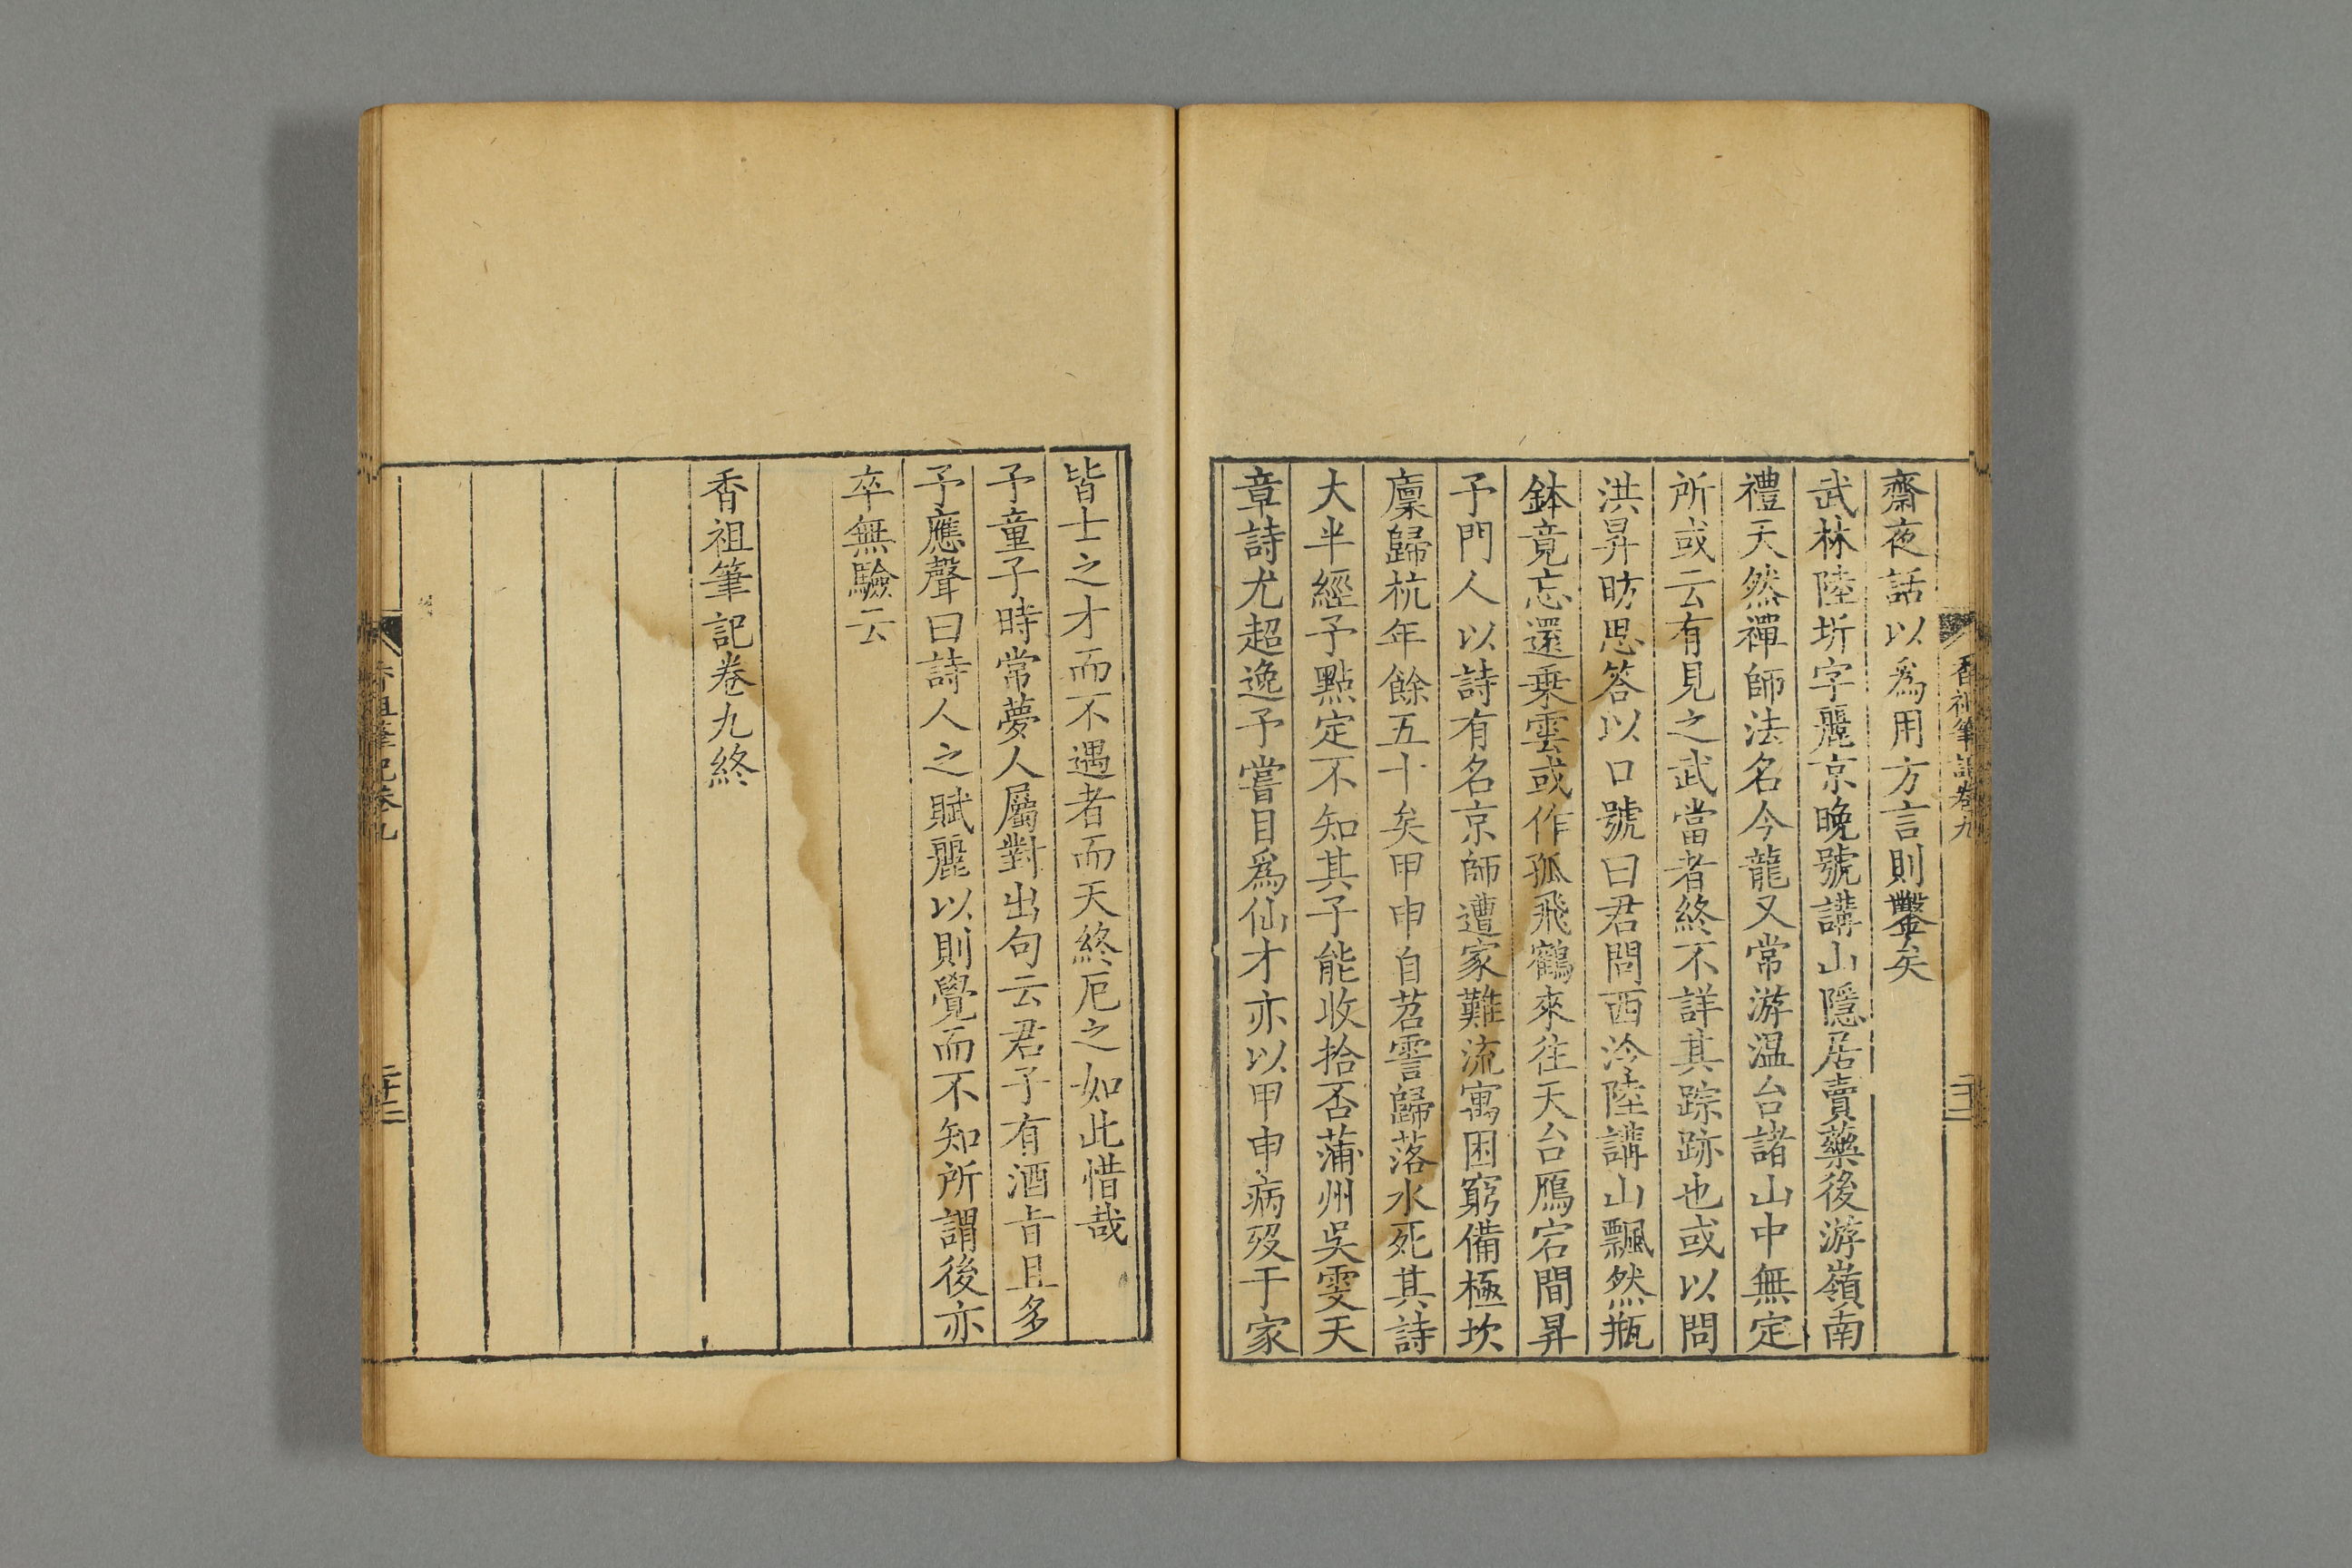 齋夜話以爲用方言則鑿矣
武林陸圻字麗京晚號講山隱居賣藥後游嶺南
禮天然禪師法名今龍又常游温台諸山中無定
所或云有見之武當者終不詳其踪跡也或以問
洪昇昉思答以口號曰君問西泠陸講山飄然瓶
鉢竟忘還乗雲或作孤飛鶴來往天台鴈宕間昇
予門人以詩有名京師遭家難流寓困窮備極坎
廩歸杭年餘五十矣甲申自苕霅歸落水死其詩
大半經予點定不知其子能收拾否蒲州吳雯天
章詩尤超逸予嘗目爲仙才亦以甲申病歿于家
香祖筆記卷九
皆士之才而不遇者而天終厄之如此惜哉
予童子時常夢人屬對出句云君子有酒旨且多
予應聲曰詩人之賦麗以則覺而不知所謂後亦
卒無驗云
香祖筆記卷九終
香祖筆記卷九